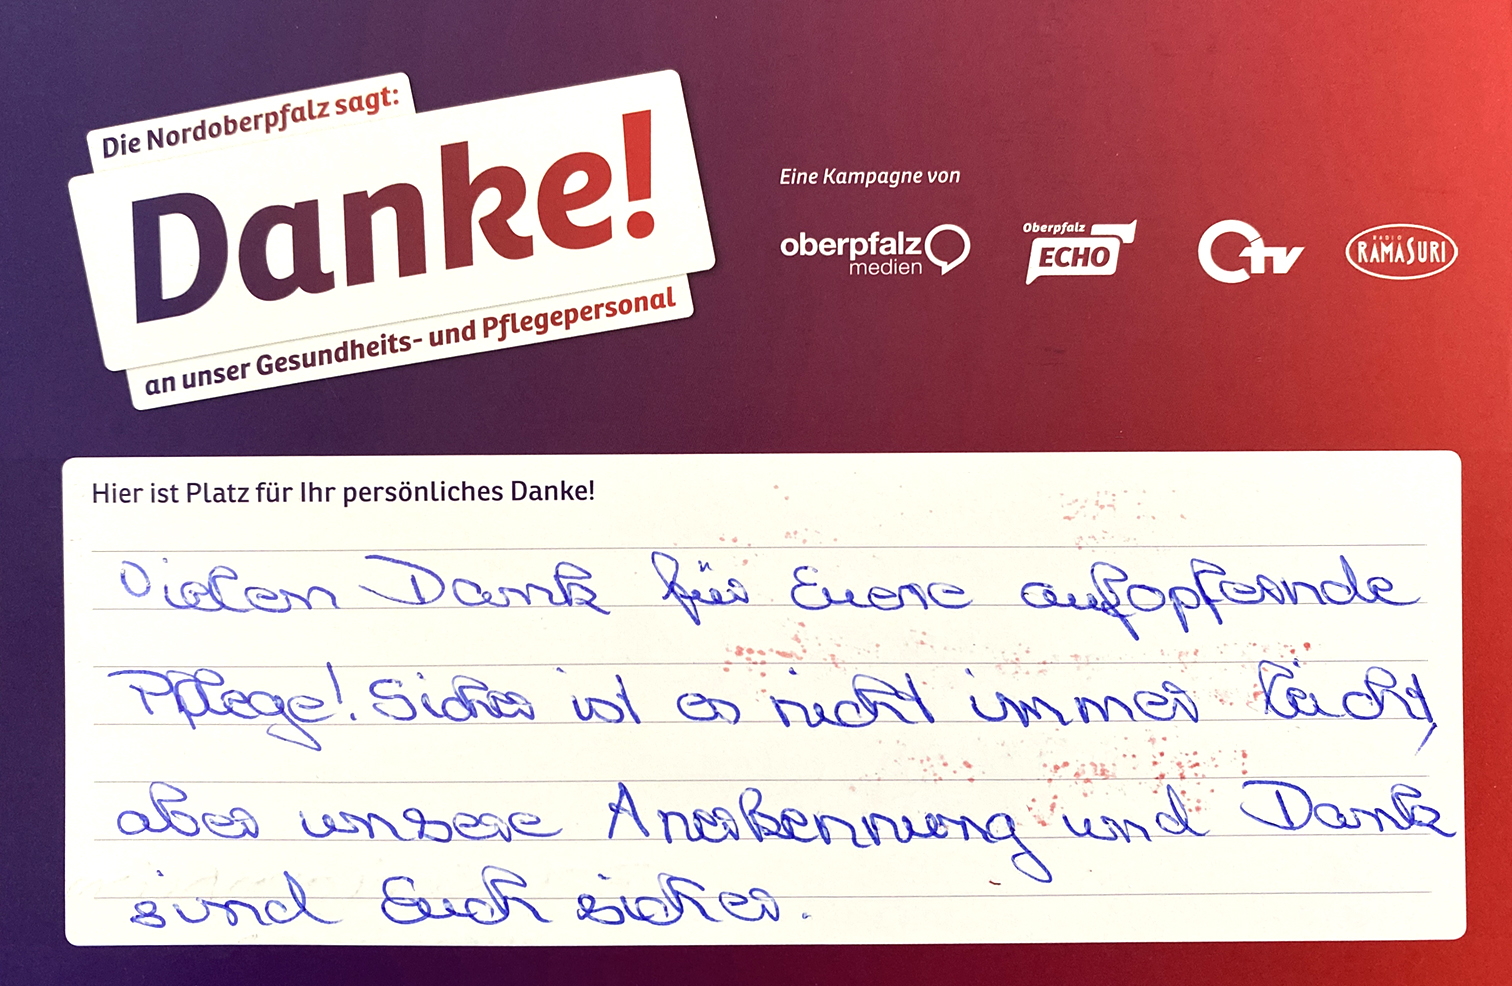 Die Nordoberpfalz sagt:
Danke!
an unser Gesundheits- und Pflegepersonal
Eine Kampagne von
oberpfalz
medien
Oberpfalz
ECHO
OTV
RADIO
RAMASURI
Hier ist Platz für Ihr persönliches Danke!
Vielen Dank für Euere aufopfernde
Pflege! Sicher ist es nicht immer leicht,
aber unsere Anerkennung und Dank
sind Euch sicher.